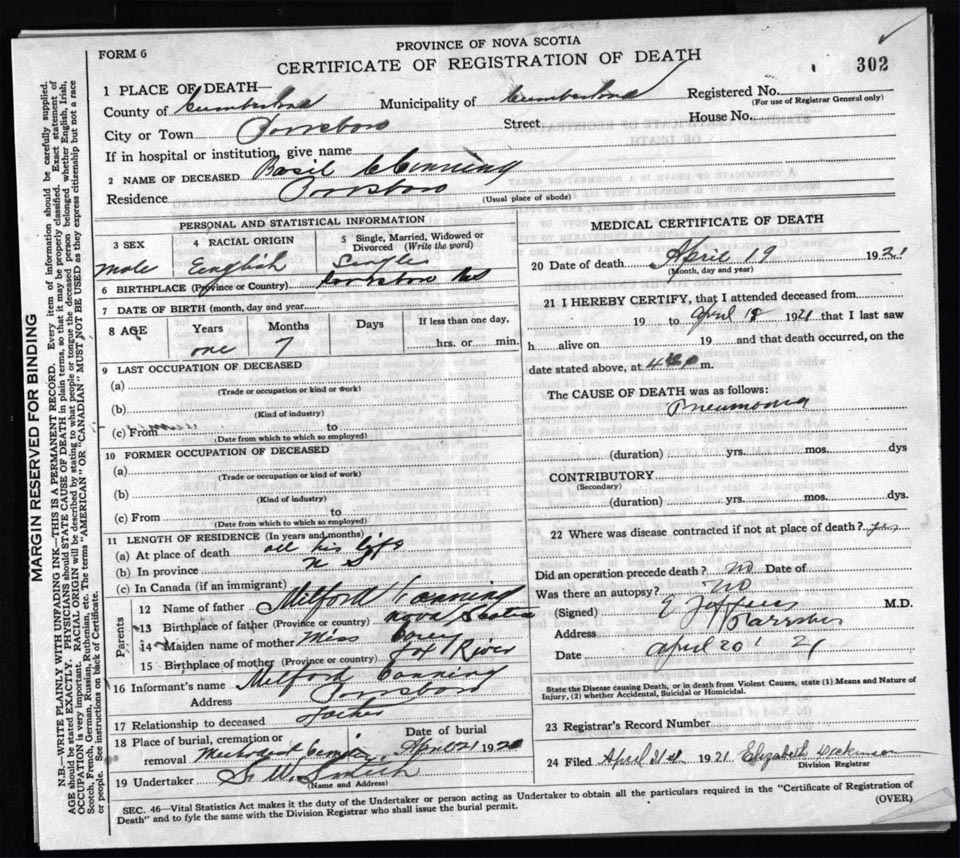 PROVINCE OF NOVA SCOTIA
FORM 6
CERTIFICATE OF REGISTRATION OF DEATH
302
1 PLACE OF DEATH—
County of Cumberland Municipality of Cumberland Registered No.
(For use of Registrar General only)
City or Town Parrsboro Street House No.
If in hospital or institution, give name
2 NAME OF DECEASED Basil C Canning
Residence Parrsboro (Usual place of abode)
PERSONAL AND STATISTICAL INFORMATION
3 SEX 4 RACIAL ORIGIN 5 Single, Married, Widowed or Divorced (Write the word)
Male English Single
6 BIRTHPLACE (Province or Country) Parrsboro NS
7 DATE OF BIRTH (month, day and year)
8 AGE Years Months Days If less than one day,
one 7 hrs. or min.
9 LAST OCCUPATION OF DECEASED
(a)
(Trade or occupation or kind or work)
(b)
(Kind of industry)
(c) From to
(Date from which to which so employed)
10 FORMER OCCUPATION OF DECEASED
(a)
(Trade or occupation or kind of work)
(b)
(Kind of industry)
(c) From to
(Date from which to which so employed)
11 LENGTH OF RESIDENCE (In years and months)
(a) At place of death all his life
(b) In province N S
(c) In Canada (if an immigrant)
Parents
12 Name of father Milford Canning
13 Birthplace of father (Province or country) Nova Scotia
14 Maiden name of mother Miss
15 Birthplace of mother (Province or country) Fox River
16 Informant's name Milford Canning
Address Parrsboro
17 Relationship to deceased Father
18 Place of burial, cremation or removal Date of burial
Methodist April 21 1920
19 Undertaker S. W. Smith
(Name and Address)
MEDICAL CERTIFICATE OF DEATH
20 Date of death April 19 1921
(Month, day and year)
21 I HEREBY CERTIFY, that I attended deceased from
19 to April 18 1921 that I last saw
h alive on 19 and that death occurred, on the
date stated above, at m.
The CAUSE OF DEATH was as follows:
Pneumonia
(duration) yrs. mos. dys
CONTRIBUTORY
(Secondary)
(duration) yrs. mos. dys.
22 Where was disease contracted if not at place of death?
Did an operation precede death? no Date of
Was there an autopsy? no
(Signed) M.D.
Address Parrsboro
Date April 20 21
State the Disease causing Death, or in death from Violent Causes, state (1) Means and Nature of
Injury, (2) whether Accidental, Suicidal or Homicidal.
23 Registrar's Record Number
24 Filed April 21st 1921 Elizabeth Dickinson
Division Registrar
SEC. 46—Vital Statistics Act makes it the duty of the Undertaker or person acting as Undertaker to obtain all the particulars required in the "Certificate of Registration of
Death" and to fyle the same with the Division Registrar who shall issue the burial permit.
(OVER)
MARGIN RESERVED FOR BINDING
N.B.—WRITE PLAINLY WITH UNFADING INK—THIS IS A PERMANENT RECORD. Every item of information should be carefully supplied.
AGE should be stated EXACTLY. PHYSICIANS should STATE CAUSE OF DEATH in plain terms, so that it may be properly classified. Exact statement of
OCCUPATION is very important. RACIAL ORIGIN will be described by stating to what people or tongue the deceased person belonged whether English, Irish,
Scotch, French, German, Russian, Ruthenian, etc. The terms "AMERICAN" OR "CANADIAN" MUST NOT BE USED as they express citizenship but not a race
or people. See instructions on back of Certificate.